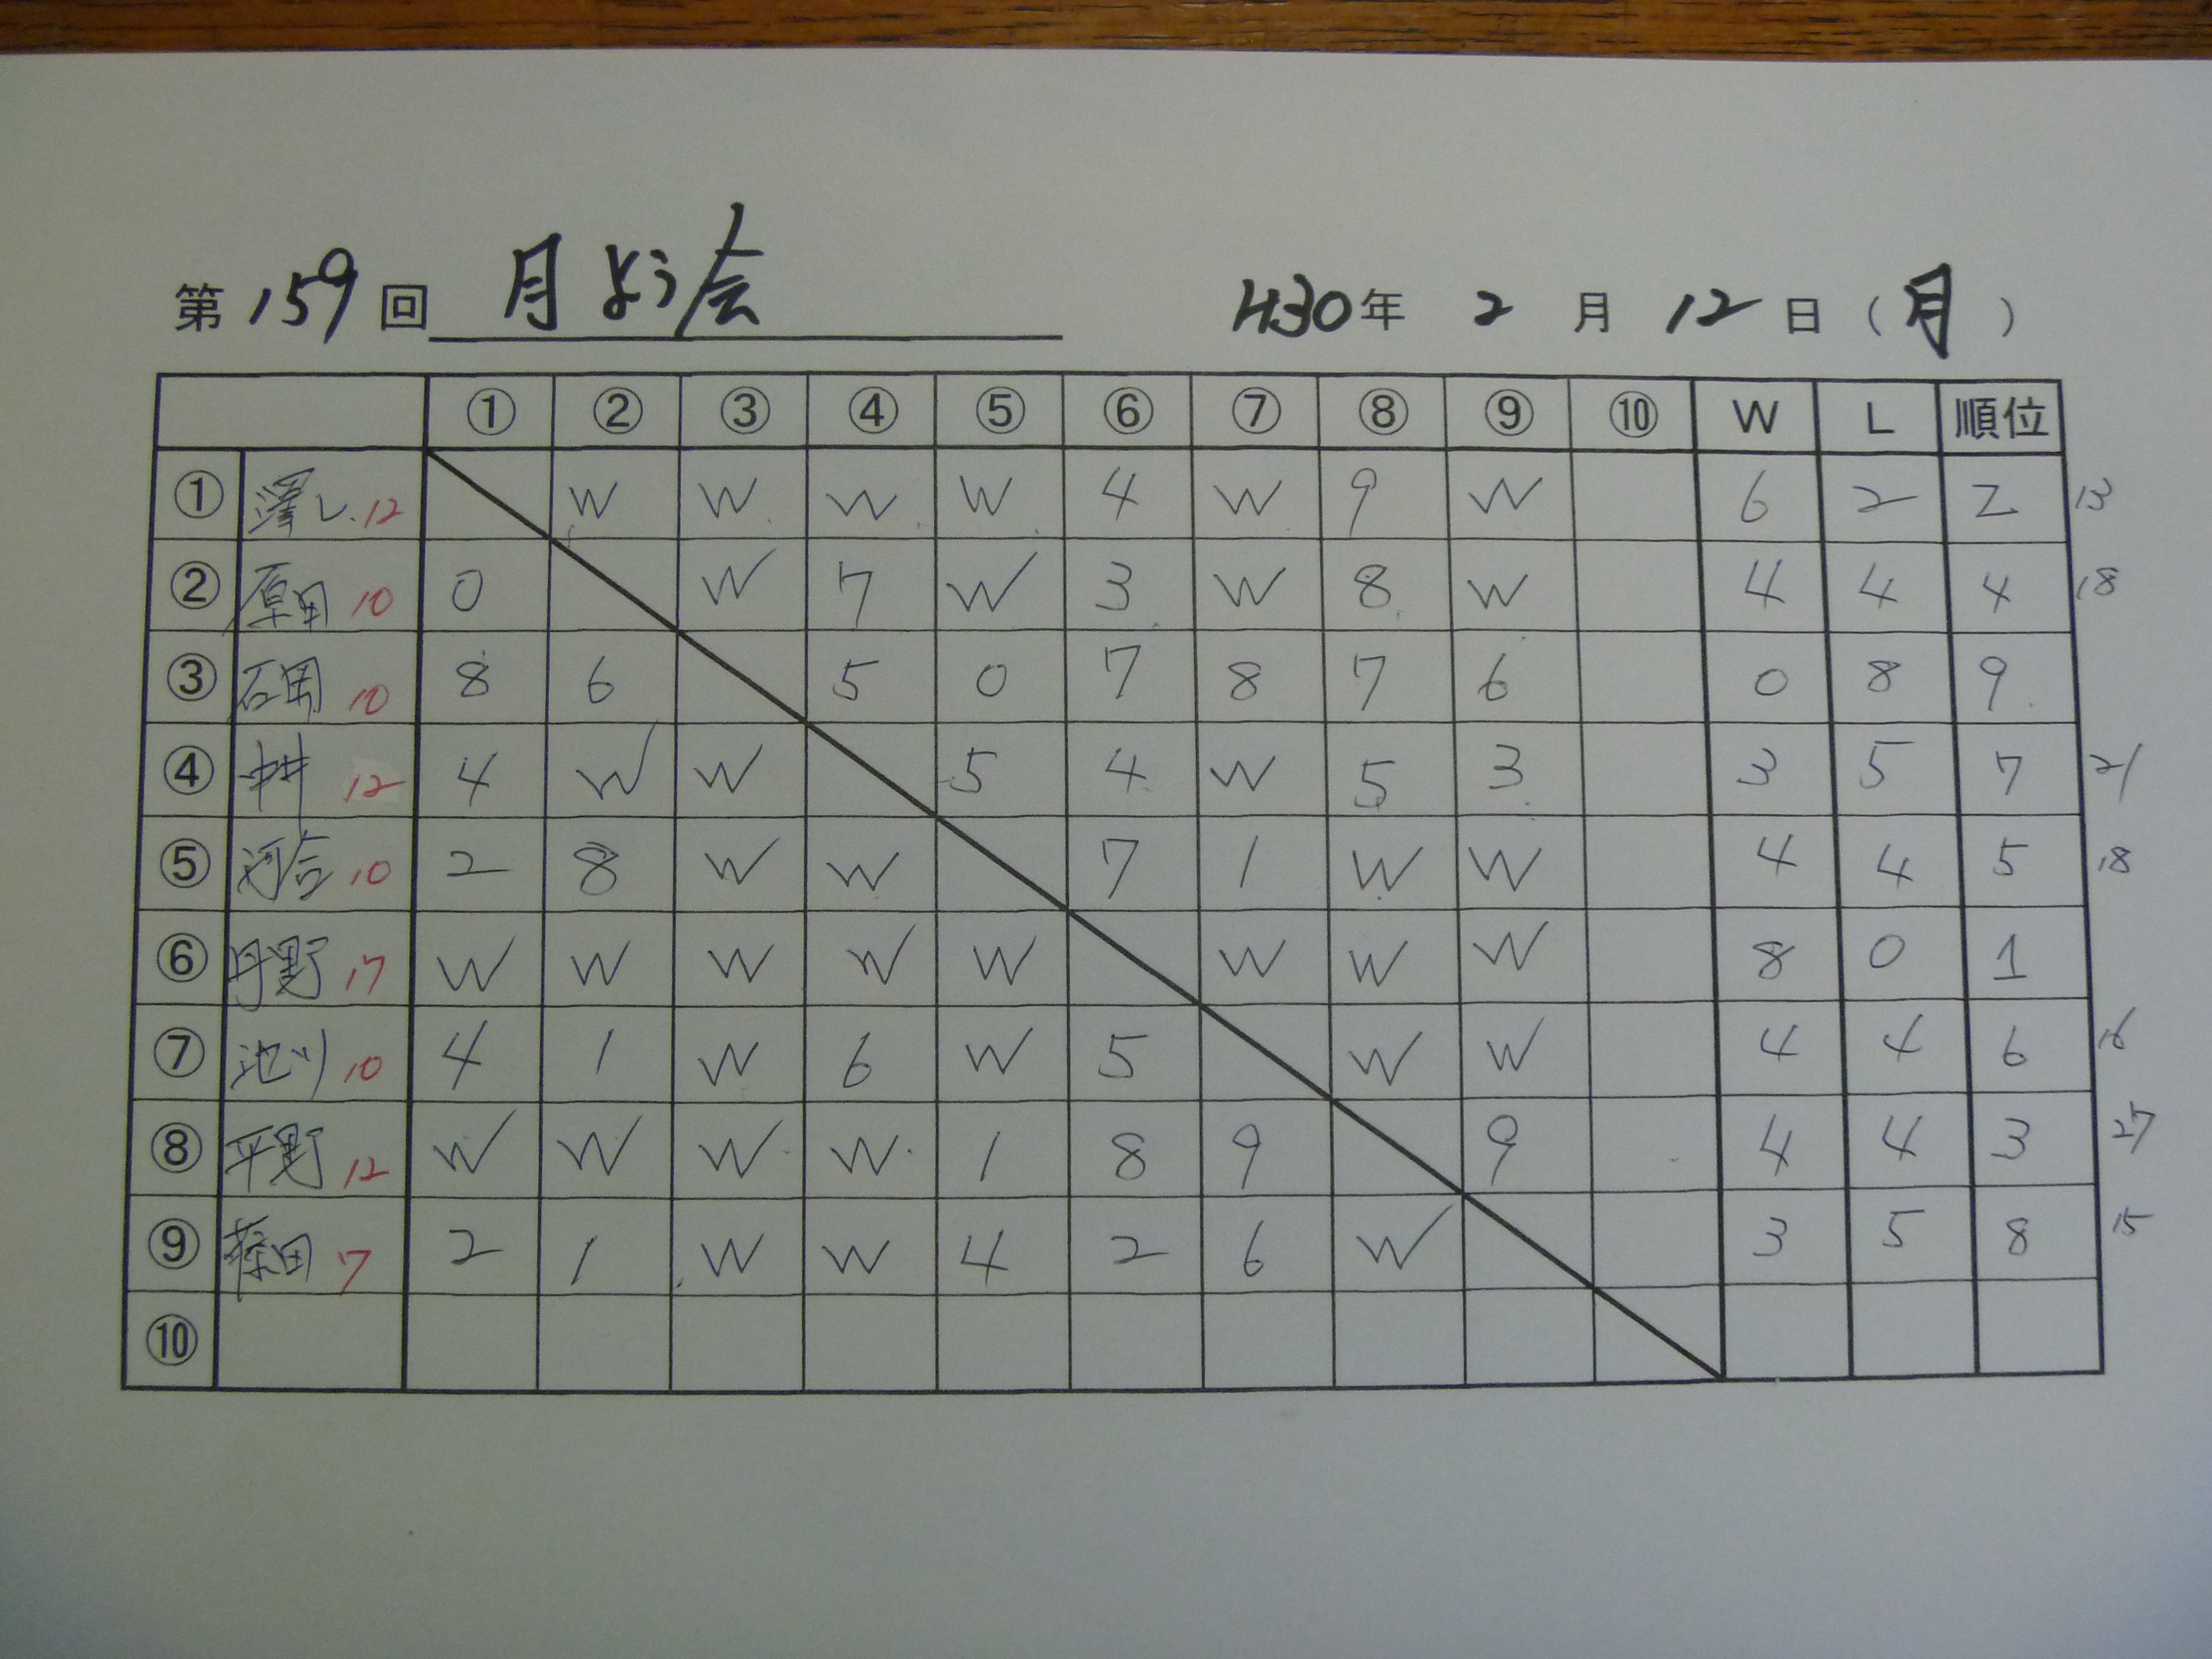 第159回 月よう会 H30年 2月 12日(月)
① ② ③ ④ ⑤ ⑥ ⑦ ⑧ ⑨ ⑩ W L 順位
① 澤し.12 W W W W 4 W 9 W 6 2 2 13
② 原田 10 0 W 7 W 3 W 8 W 4 4 4 18
③ 石岡 10 8 6 5 0 7 8 7 6 0 8 9
④ 中井 12 4 W W 5 4 W 5 3 3 5 7 21
⑤ 河合 10 2 8 W W 7 1 W W 4 4 5 18
⑥ 丹野 17 W W W W W W W W 8 0 1
⑦ 池川 10 4 1 W 6 W 5 W W 4 4 6 16
⑧ 平野 12 W W W W 1 8 9 9 4 4 3 27
⑨ 藤田 7 2 1 W W 4 2 6 W 3 5 8 15
⑩